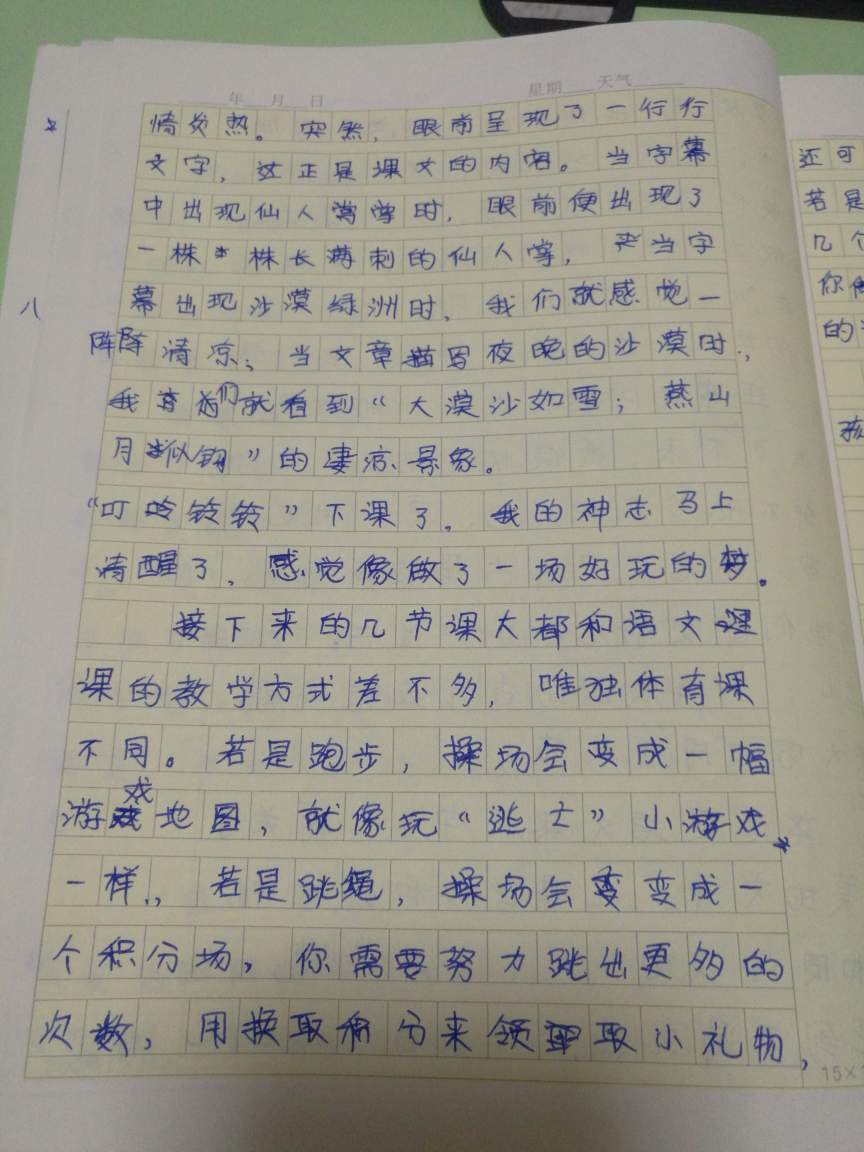 年 月 日 星期 天气
情炎热。突然，眼前呈现了一行行
文字，这正是课文的内容。当字幕
中出现仙人掌时，眼前便出现了
一株株长满刺的仙人掌，当字
幕出现沙漠绿洲时，我们就感觉一
阵阵清凉；当文章描写夜晚的沙漠时，
我们就看到“大漠沙如雪；燕山
月似钩”的凄凉景象。
“叮呤铃铃”下课了。我的神志马上
清醒了，感觉像做了一场好玩的梦。
接下来的几节课大都和语文
课的教学方式差不多，唯独体育课
不同。若是跑步，操场会变成一幅
游戏地图，就像玩“逃亡”小游戏
一样，若是跳绳，操场会变成一
个积分场，你需要努力跳出更多的
次数，用换取积分来领取小礼物，
八
还可
若是
几个
你
的
孩
15×1